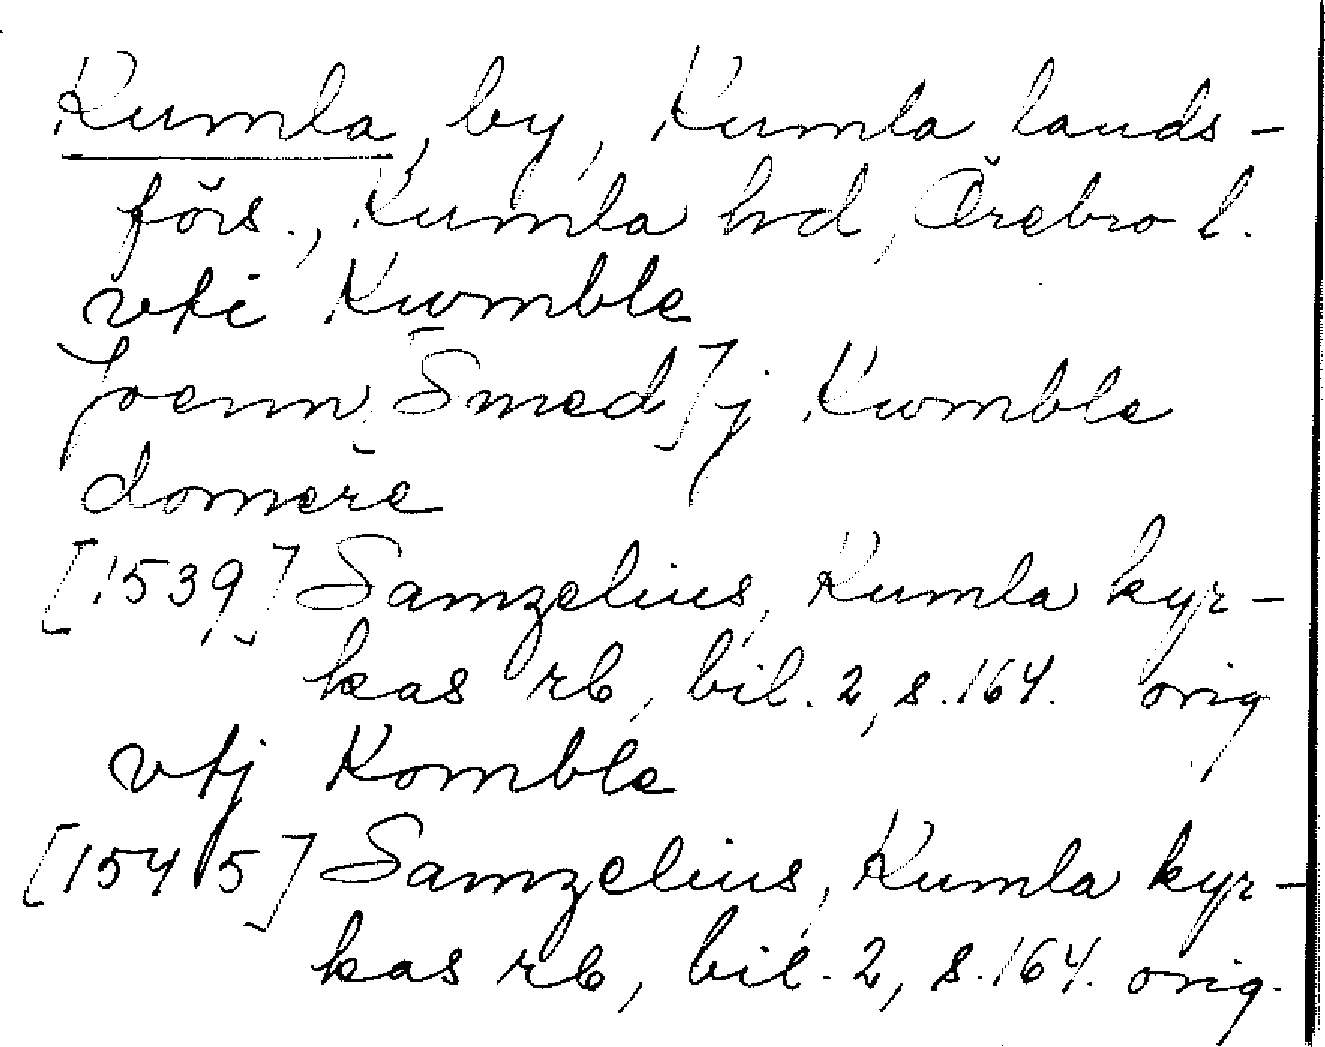 Kumla, by, Kumla lands-
förs., Kumla hd, Örebro l.
vti Kwmble
Joenn Smed] j Kwmble
domere
[1539] Samzelius, Kumla kyr-
kas rb, bil. 2, s. 164. orig
vtj Komble
[1545] Samzelius, Kumla kyr-
kas rb, bil. 2, s. 164. orig.